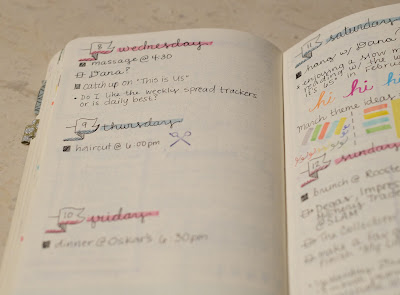 8 wednesday
massage @ 4:30
Dana?
catch up on "This is Us"
Do I like the weekly spread trackers
or is daily best?
9 thursday
haircut @ 6:00pm
10 friday
dinner @ Oskar's 6:30pm
11 saturday
hang w/ Dana?
enjoying a slow m
it's 60° in Febru
hi hi hi
march theme ideas
12 sunday
brunch @ Rooste
The Collection
make a fav